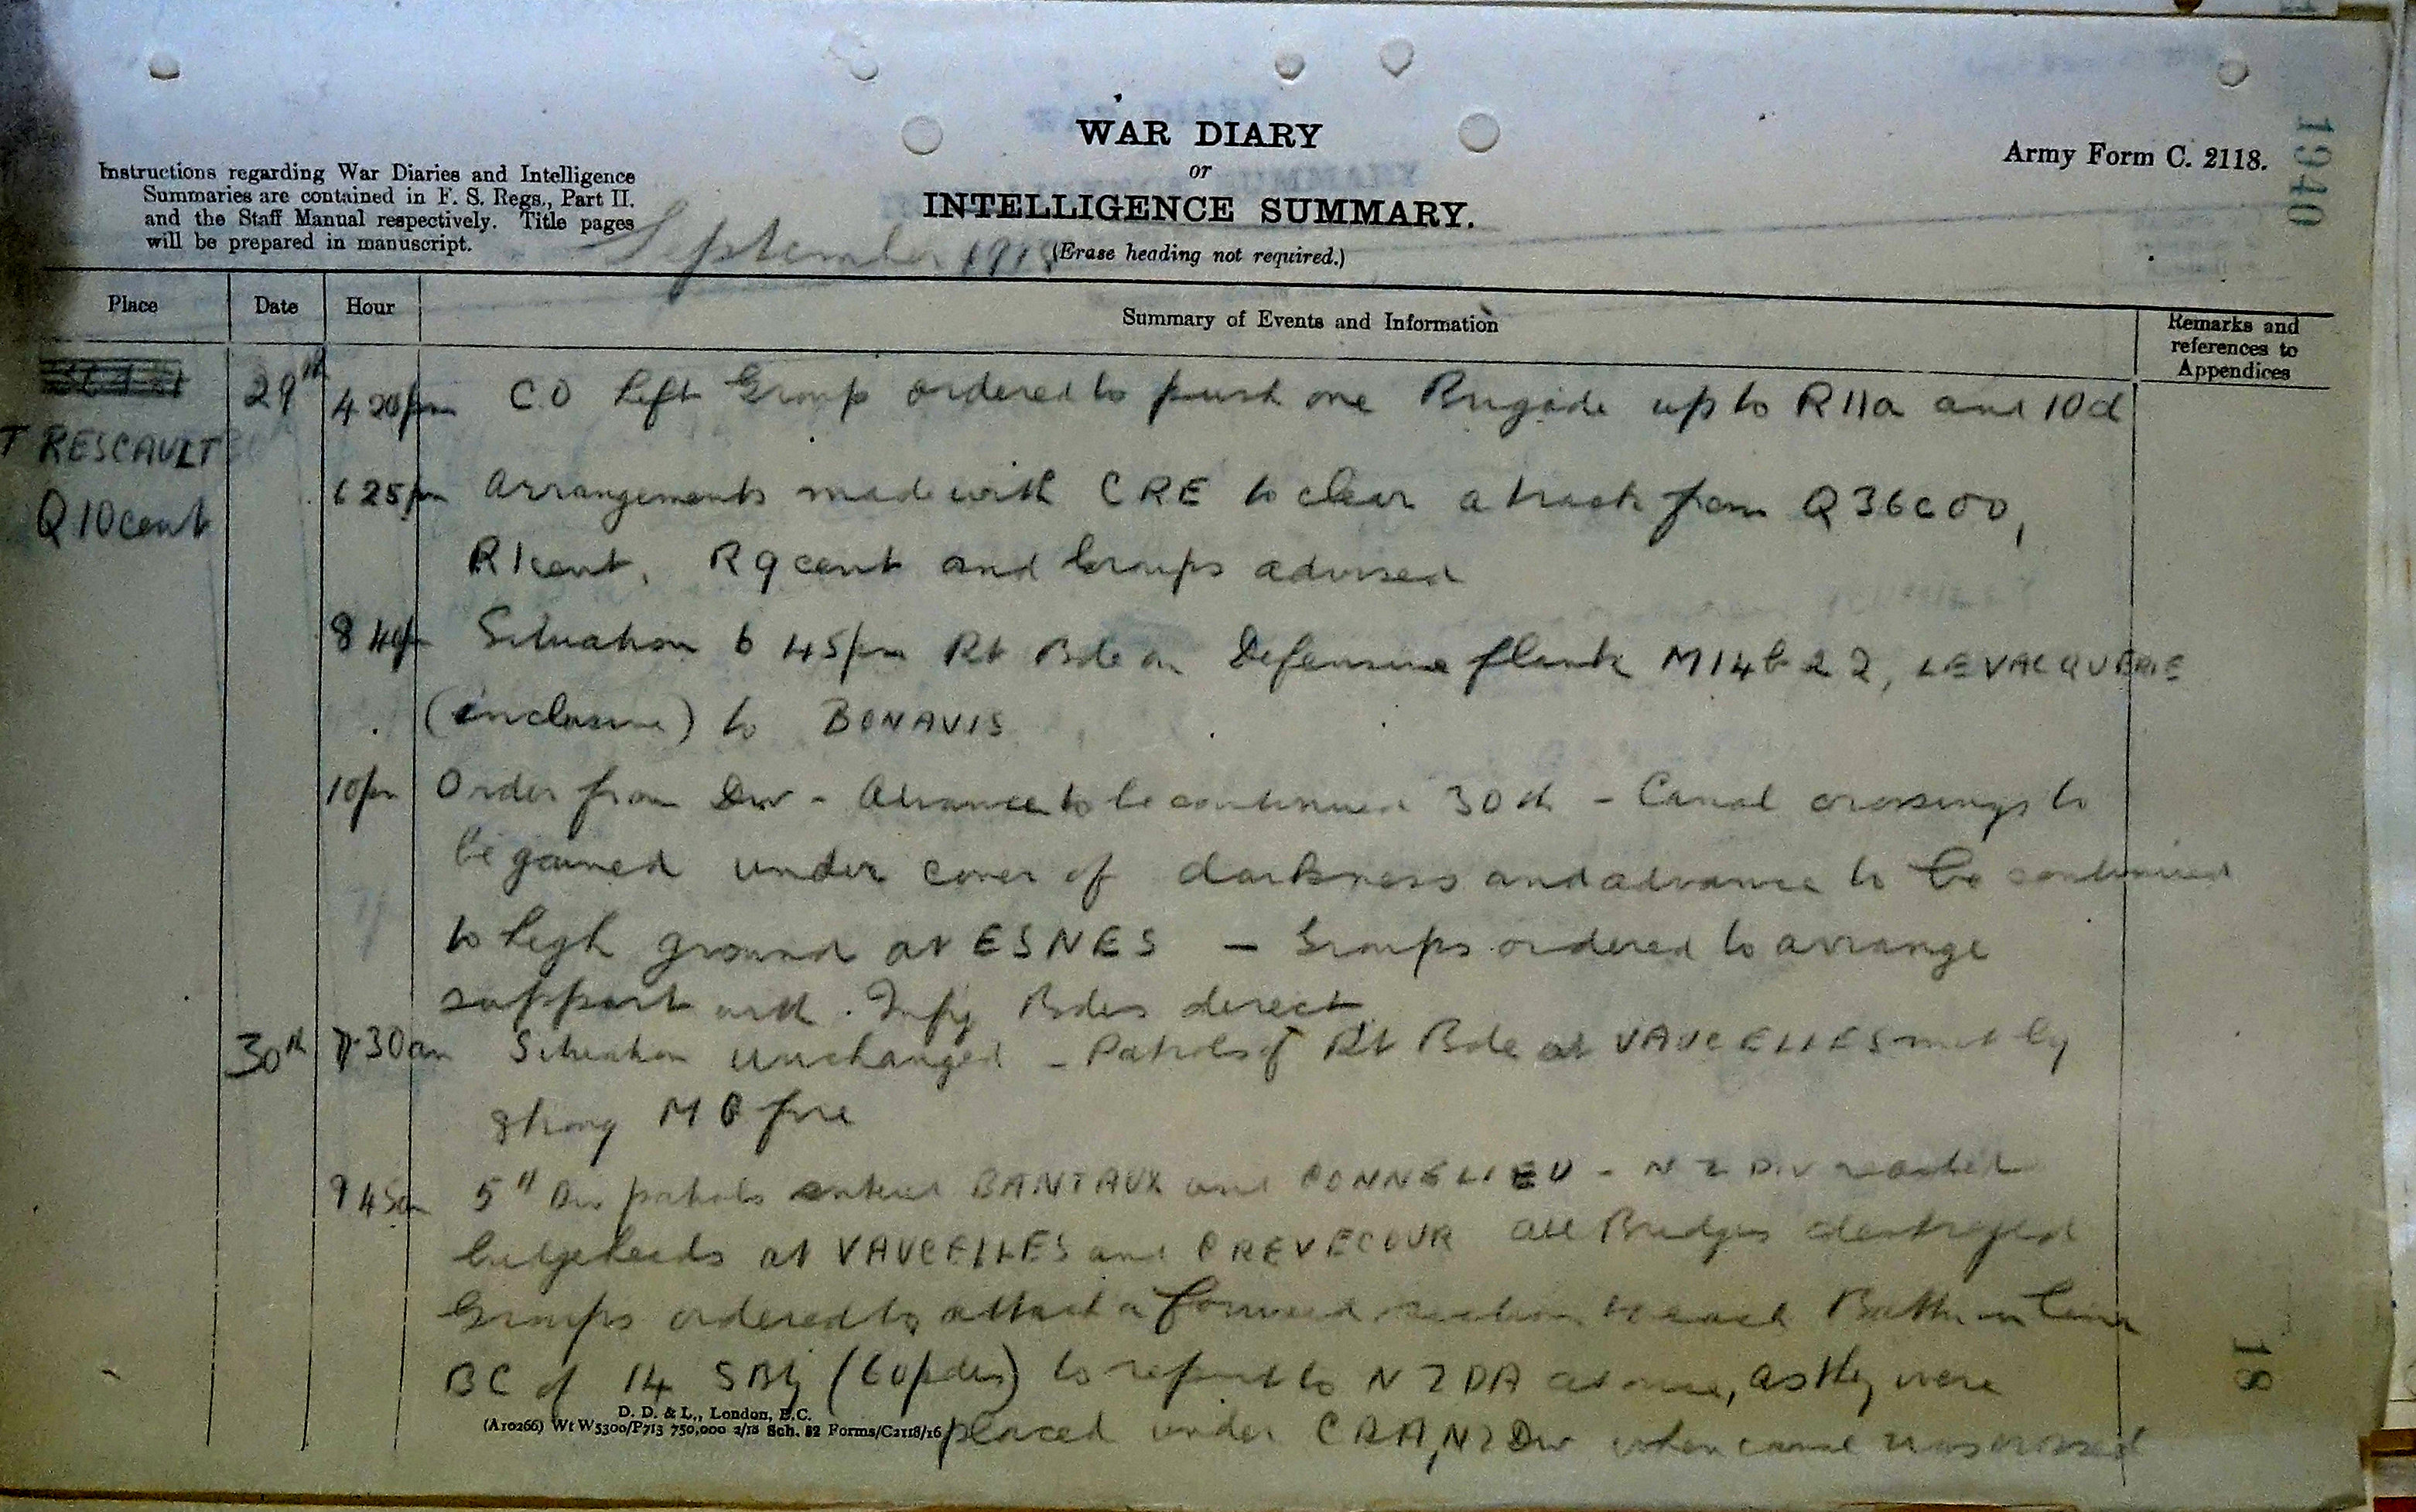 WAR DIARY
or
INTELLIGENCE SUMMARY.
(Erase heading not required.)
Army Form C. 2118.
1940
Instructions regarding War Diaries and Intelligence
Summaries are contained in F. S. Regs., Part II.
and the Staff Manual respectively. Title pages
will be prepared in manuscript.
September 1918
Place Date Hour Summary of Events and Information Remarks and references to Appendices
TRESCAULT
Q10cent
29th 4 20pm CO Left Group ordered to push one Brigade up to R11a and 10d
6 25pm Arrangements made with CRE to clear a track from Q36c00,
R1cent, R9cent and Groups advised
8 40pm Situation 6 45pm Rt Bde on Defensive flank M14b22, LEVACQUERIE
(inclusive) to BONAVIS
10pm Order from Div - Advance to be continued 30th - Canal crossings to
be gained under cover of darkness and advance to be continued
to high ground at ESNES - Groups ordered to arrange
support with Infy Bdes direct
30th 7.30am Situation unchanged - Patrols of Rt Bde at VAUCELLES met by
strong MG fire
9 45am 5th Div patrols entered BANTAUX and GONNELIEU - NZ Div reached
bridgeheads at VAUCELLES and CREVECOUR all Bridges destroyed
Groups ordered to attach a forward section to each Battn in line
BC of 14 SBty (60pdrs) to report to NZDA at once, as they were
placed under CRA, NZ Div when canal was crossed
D. D. & L., London, E.C.
(A10266) Wt W5300/P713 750,000 2/18 Sch. 82 Forms/C2118/16
18